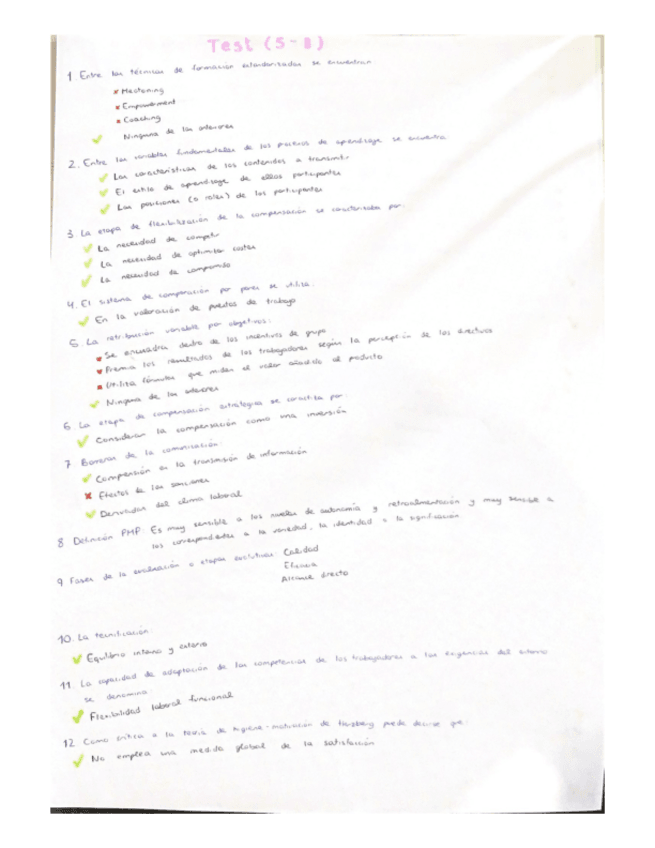 Test (5-8)
1 Entre las técnicas de formación estandarizadas se encuentran
Mentoring
Empowerment
Coaching
Ninguna de las anteriores
2. Entre las variables fundamentales de los procesos de aprendizaje se encuentra
Las características de los contenidos a transmitir
El estilo de aprendizaje de ellos participantes
Las posiciones (o roles) de los participantes
3. La etapa de flexibilización de la compensación se caracterizaba por:
La necesidad de competir
La necesidad de optimizar costes
La necesidad de compromiso
4. El sistema de comparación por pares se utiliza:
En la valoración de puestos de trabajo
5. La retribución variable por objetivos:
Se encuadra dentro de los incentivos de grupo
Premia los resultados de los trabajadores según la percepción de los directivos
Utiliza fórmulas que miden el valor añadido al producto
Ninguna de las anteriores
6. La etapa de compensación estratégica se caracteriza por:
Consideran la compensación como una inversión
7 Barreras de la comunicación:
Compensión en la transmisión de información
Efectos de las sanciones
Derivados del clima laboral
8 Definición PMP: Es muy sensible a los niveles de autonomía y retroalimentación y muy sensible a
los correspondientes a la variedad, la identidad o la significación
9 Fases de la evaluación o etapas evolutivas: Calidad
Eficacia
Alcance directo
10. La tecnificación
Equilibrio interno y externo
11. La capacidad de adaptación de las competencias de los trabajadores a las exigencias del entorno
se denomina:
Flexibilidad laboral funcional
12 Como crítica a la teoría de higiene-motivación de Herzberg puede decirse que:
No emplea una medida global de la satisfacción